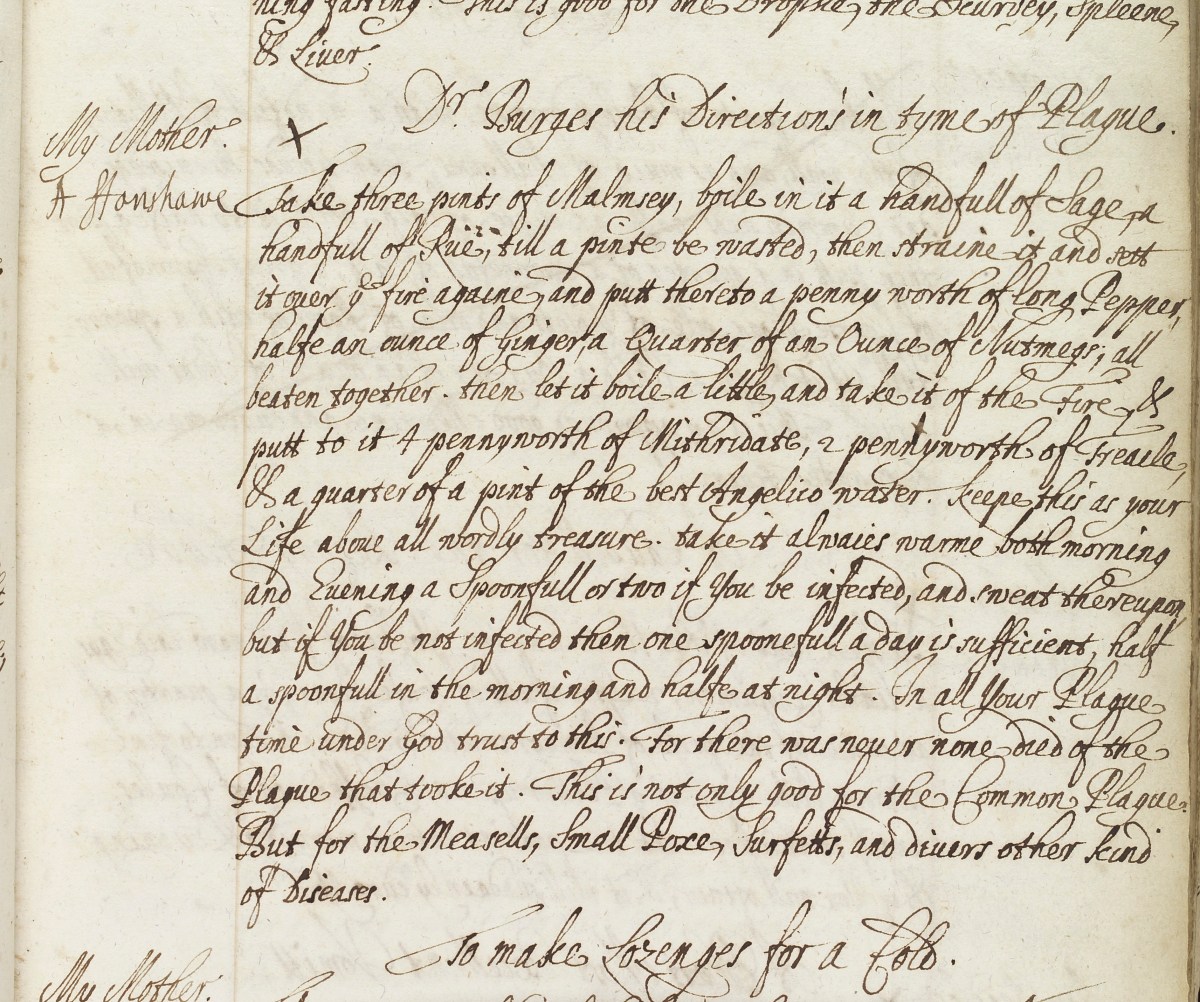 ning fasting. This is good for the Dropsie, the Scurvey, Spleene,
& Liver.
Dr. Burges his Directions in tyme of Plague.
My Mother.
X
A ffanshawe
Take three pints of Malmsey, boile in it a handfull of Sage, a
handfull of Rue, till a pinte be wasted, then straine it and sett
it over ye fire againe, and putt thereto a penny worth of long Pepper,
halfe an ounce of Ginger, a Quarter of an Ounce of Nutmegs; all
beaten together. then let it boile a little, and take it of the Fire, &
putt to it 4 pennyworth of Mithridate, 2 pennyworth of Treacle,
& a quarter of a pint of the best Angelico water. keepe this as your
Life above all wordly treasure. take it alwaies warme both morning
and Evening a Spoonfull or two if You be infected, and sweat thereupon,
but if You be not infected then one spoonefull a day is sufficient, half
a spoonfull in the morning and halfe at night. In all Your Plague
time under God trust to this. For there was never none died of the
Plague that tooke it. This is not only good for the Common Plague.
But for the Measells, Small Poxe, Surfetts, and divers other kind
of Diseases.
To make Lozenges for a Cold.
My Mother.